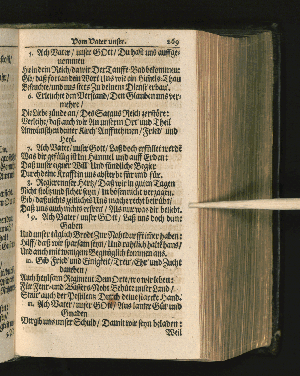 Vom Vater unser. 269
5. Ach Vater / unser GOtt / Du hast uns aufgenommen
Hat dein Reich / da wir Der Tauffe Bad bekommen:
Gib / daß fortan dein Wort
Besuchte / und uns stets Zu deinem Dienst erbaut.
6. Erleuchte den Verstand / Den Glauben uns vermehre /
Die Liebe zünde an / Des Satans Reich zerstöre:
Verleihe / daß auch wir An unserm Ort und Theil
deine Kirch Auffnehmen / Fried / und
Heyl.
7. Ach Vater / unser Gott / Laß doch
Was dir gefällig ist Im Himmel und auff Erden:
Daß unser eigner Will Und sündliche Begier
Durch deine Krafft in uns absterbe für und für.
8. Regier unser Hertz / Daß wir in guten Tagen
Nicht stoltz und sicher seyn / In bösen nicht verzagen.
Gib / daß nichts zeitliches Uns mache recht betrübt /
Daß uns auch nichts erfreu / Als nur was dir beliebt.
Ach Vater / unser GOtt / Laß uns doch deine
Gaben
Und unser täglich Brodt Zur Nohtdurfft immer haben:
Hilff / daß wir sparsam seyn / Und rahtlich halten haus /
Und auch mit wenigem Begnüglich kommen aus.
Gib Fried und Einigkeit / Treu / Ehr und Zucht
darneben /
Auch heylsam Regiment Dem Orte / wo wir leben:
Für Feur- und Wassers-Noht Behüte unser Land /
Steur auch der Pestilentz Durch deine starcke Hand.
11. Ach Vater / unser GOtt / Aus lauter Güt und
Gnaden
Vergib uns unser Schuld / Damit wir seyn beladen:
Weil